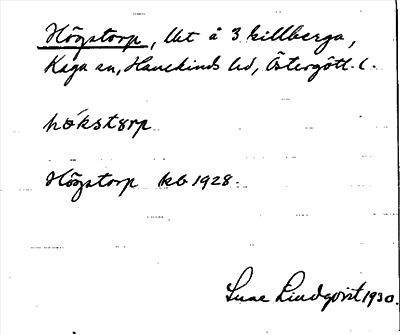 Högstorp, Ut å 3 killberga,
Kaga sn, Hanekinds hd, Östergötl. l.
hökstorp
Högstorp kb 1928.
Sune Lindqvist 1930.